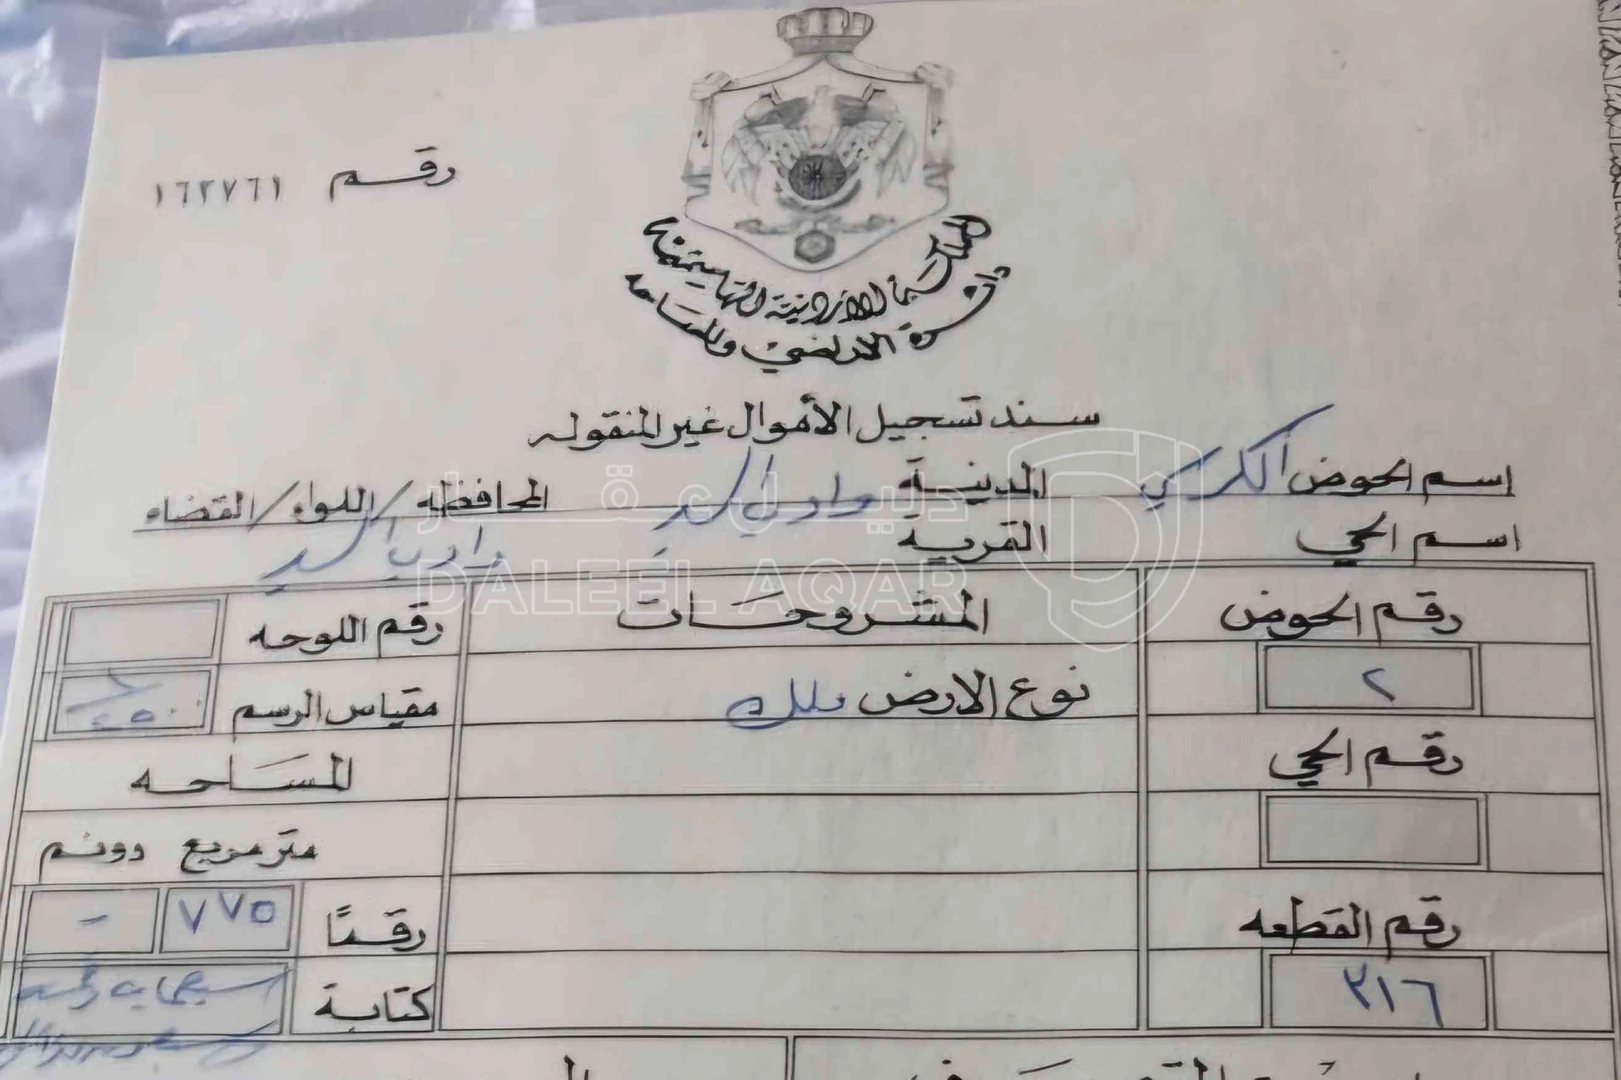 رقم ١٦٢٧٦١
المملكة الاردنية الهاشمية
دائرة الاراضي والمساحه
سند تسجيل الأموال غير المنقوله
اسم الحوض الكرسي المدينة وادي السير المحافظه/اللواء/القضاء
اسم الحي القرية وادي السير
دليل عقار
DALEEL AQAR
رقم الحوض المشروحات رقم اللوحه
٢ نوع الارض ملك مقياس الرسم
رقم الحي المساحه
متر مربع دونم
رقم القطعه رقمًا ٧٧٥ -
٣١٦ كتابة سبعماية